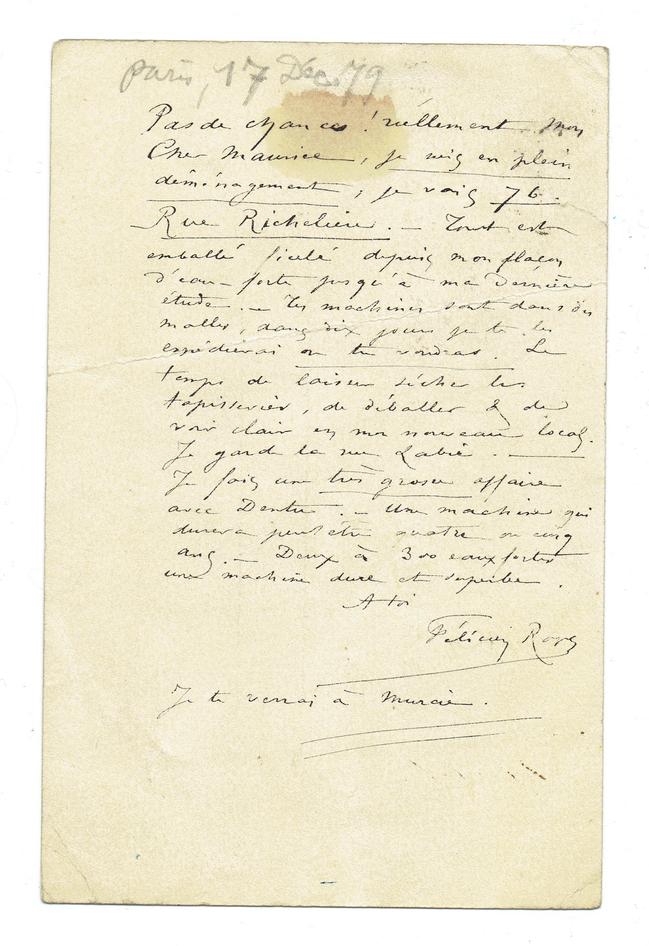 Paris, 17 Dec. 79
Pas de chance ! réellement mon
Cher Maurice, je suis en plein
déménagement ; je vais 76.
Rue Richelieu. — Tout est
emballé ficelé depuis mon flacon
d'eau-forte jusqu'à ma Dernière
étude. — Les machines sont dans des
malles, dans dix jours je te les
expédierai où tu voudras. Le
temps de laisser sécher les
tapisseries, de déballer & de
voir clair en mon nouveau local.
Je garde la rue Labie. —
Je fais une très grosse affaire
avec Dentu. — Une machine qui
durera peut être quatre ou cinq
ans. — Deux à 300 eaux fortes
une machine dure et superbe.
A toi
Félicien Rops
Je te verrai à Murcie.